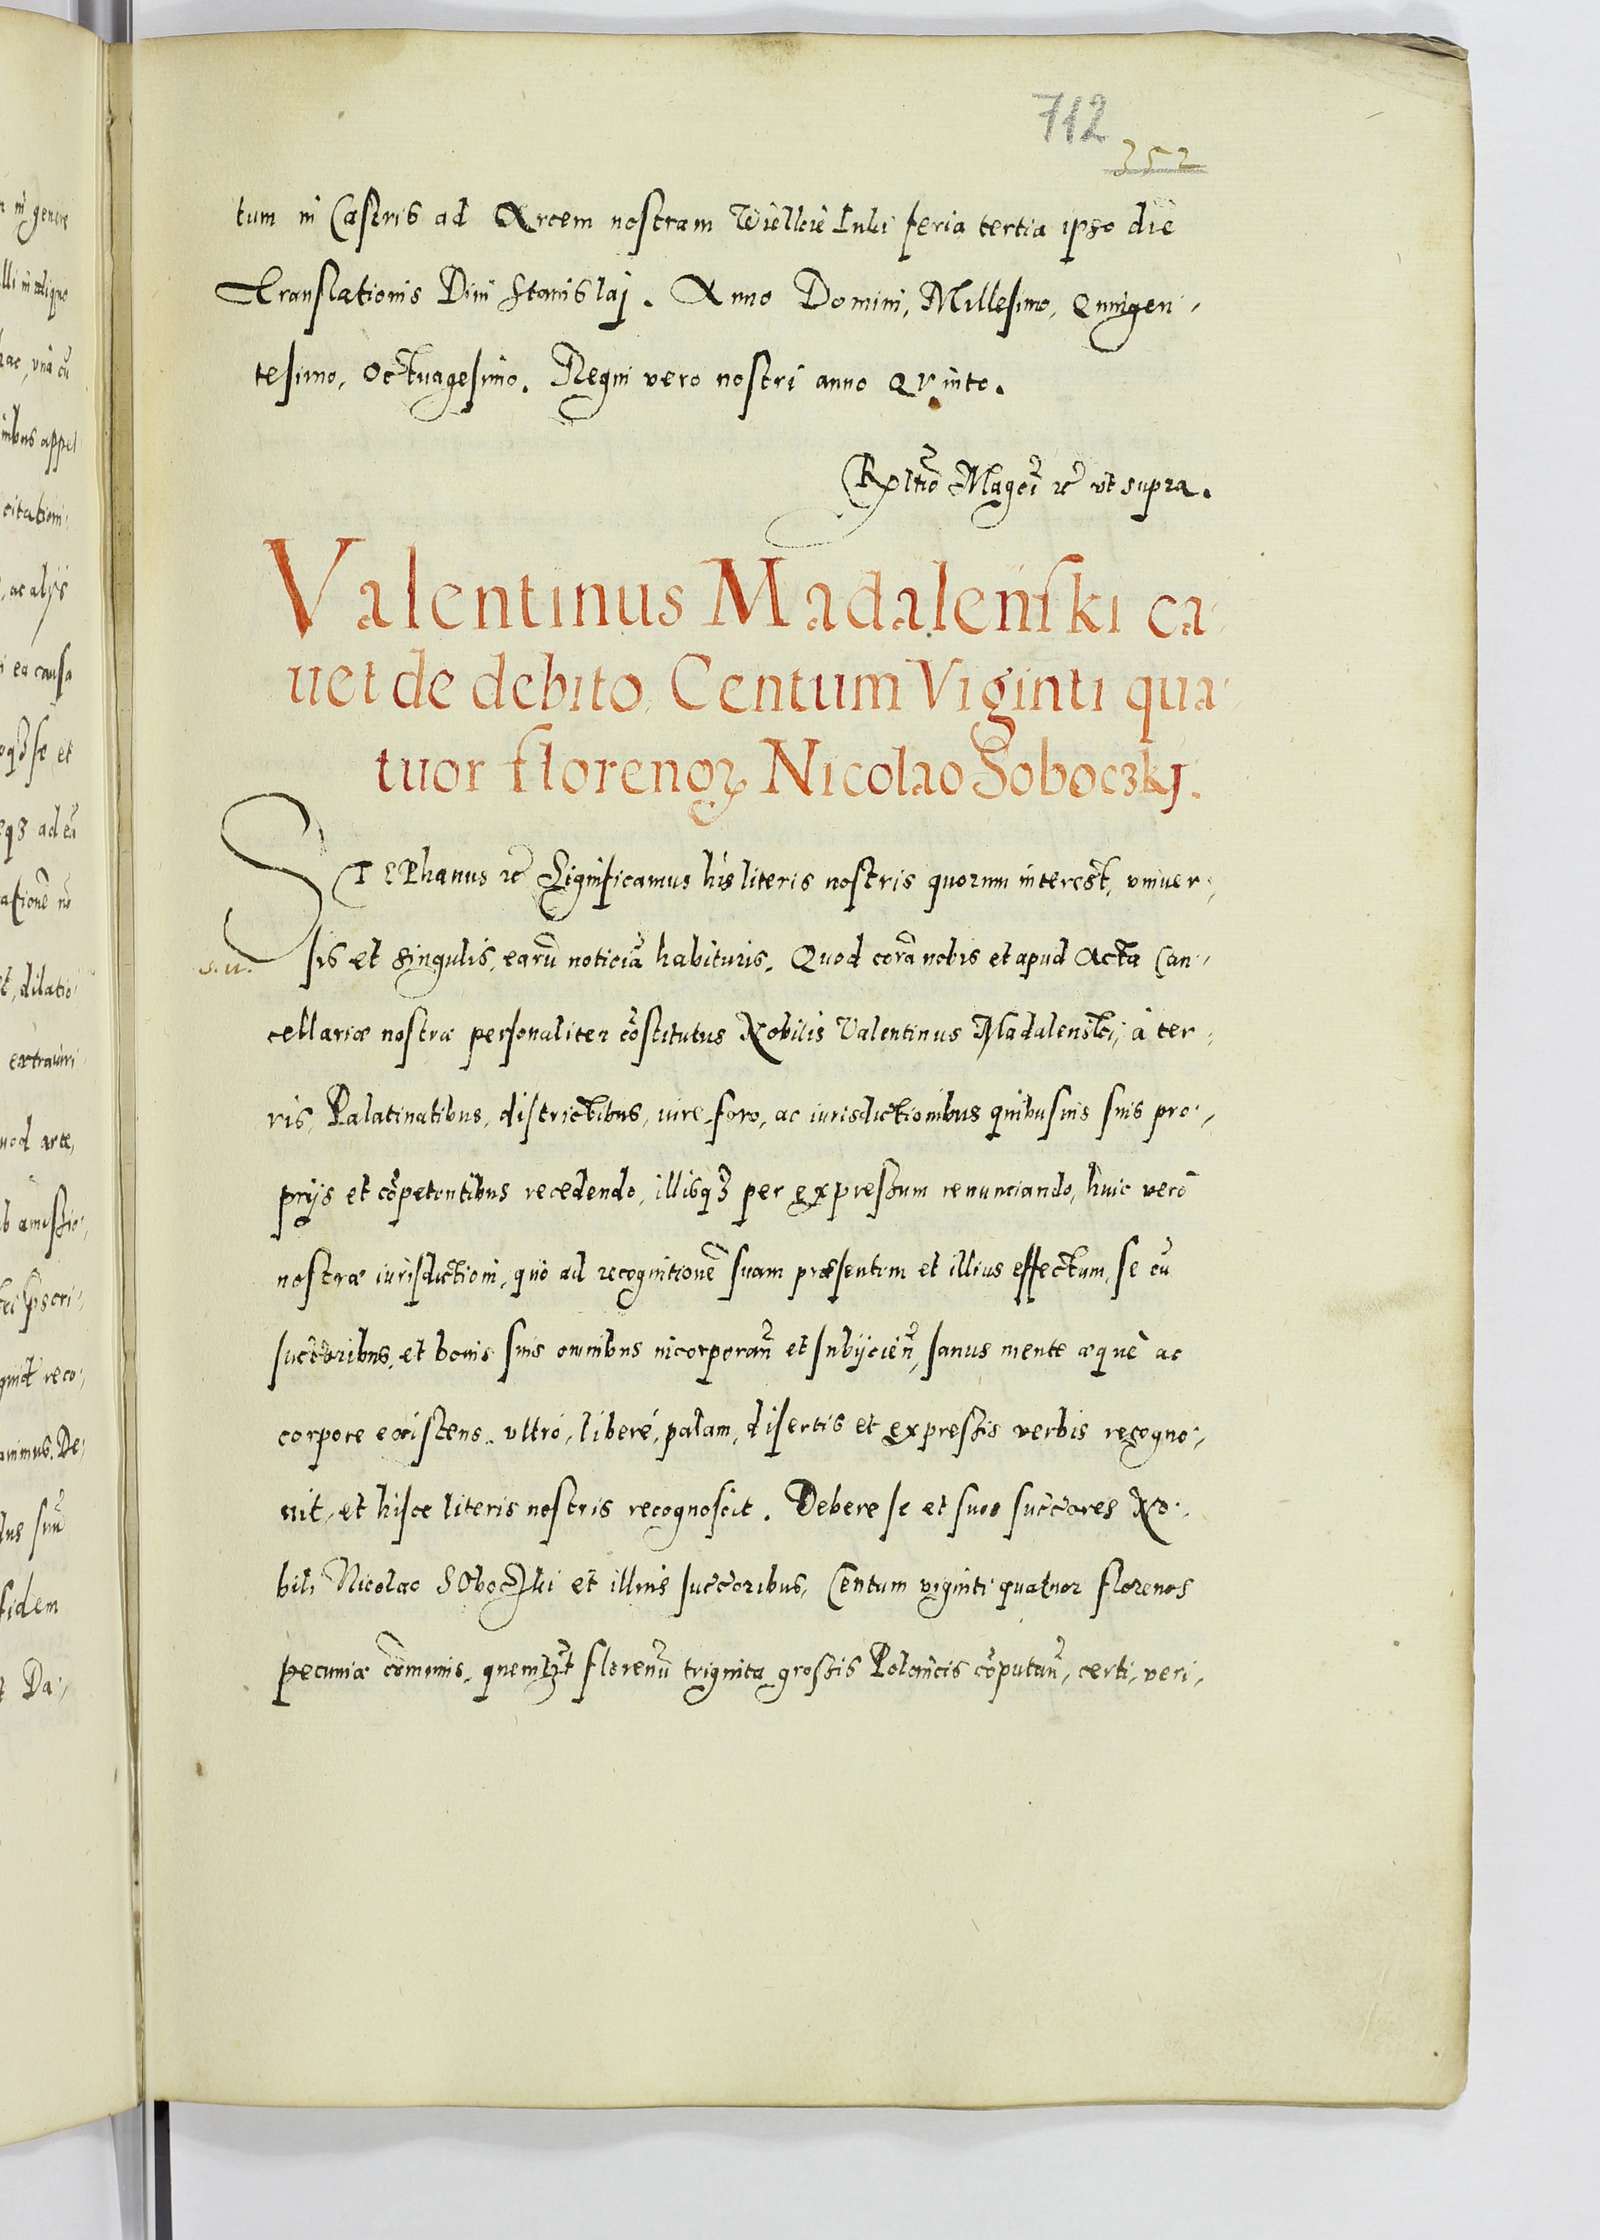 712
352
tum in Castris ad Arcem nostram Wielkie Luki feria tertia ipso die
Translationis Diui Stanislaj. Anno Domini, Millesimo, Quingen-
tesimo, Octuagesimo. Regni vero nostri anno Quinto.
Rgltio Magci rc vt supra.
Valentinus Madalenski ca-
uet de debito, Centum Viginti qua-
tuor florenoꝝ Nicolao Soboczkj.
STEPhanus rc Significamus his literis nostris quorum interest, vniuer-
s. u.
sis et singulis, earū noticiā habituris. Quod corā nobis et apud Acta Can-
cellariæ nostræ personaliter cōstitutus Nobilis Valentinus Madalenski, à ter-
ris, Palatinatibus, districtibus, iure, foro, ac iurisdictionibus quibusuis suis pro-
prijs et cōpetentibus recedendo, illisqꝫ per expressum renunciando, huic verò
nostræ iurisdictioni, quò ad recognitionē suam præsentem et illius effectum, se cū
succoribus, et bonis suis omnibus incorporan̄ et subijcien̄, sanus mente æquè ac
corpore existens, vltrò, liberè, palam, disertis et expressis verbis recogno-
uit, et hisce literis nostris recognoscit. Debere se et suos succores No-
bili Nicolao Soboczki et illius succoribus, Centum viginti quatuor florenos
pecuniæ cōmunis, quemlꝫt florenū triginta grossis Polonicis cōputan̄, certi, veri,
in genere
lli in aliquo
hac, vnà cū
inibus appel
citationi
, ac alijs
i ea causa
oqꝫ se et
eqꝫ ad eū
ationē nō
t, dilatio
extraiuri
uod arte,
b amissio-
quid reco-
animus. De-
us suū
fidem
t Da-